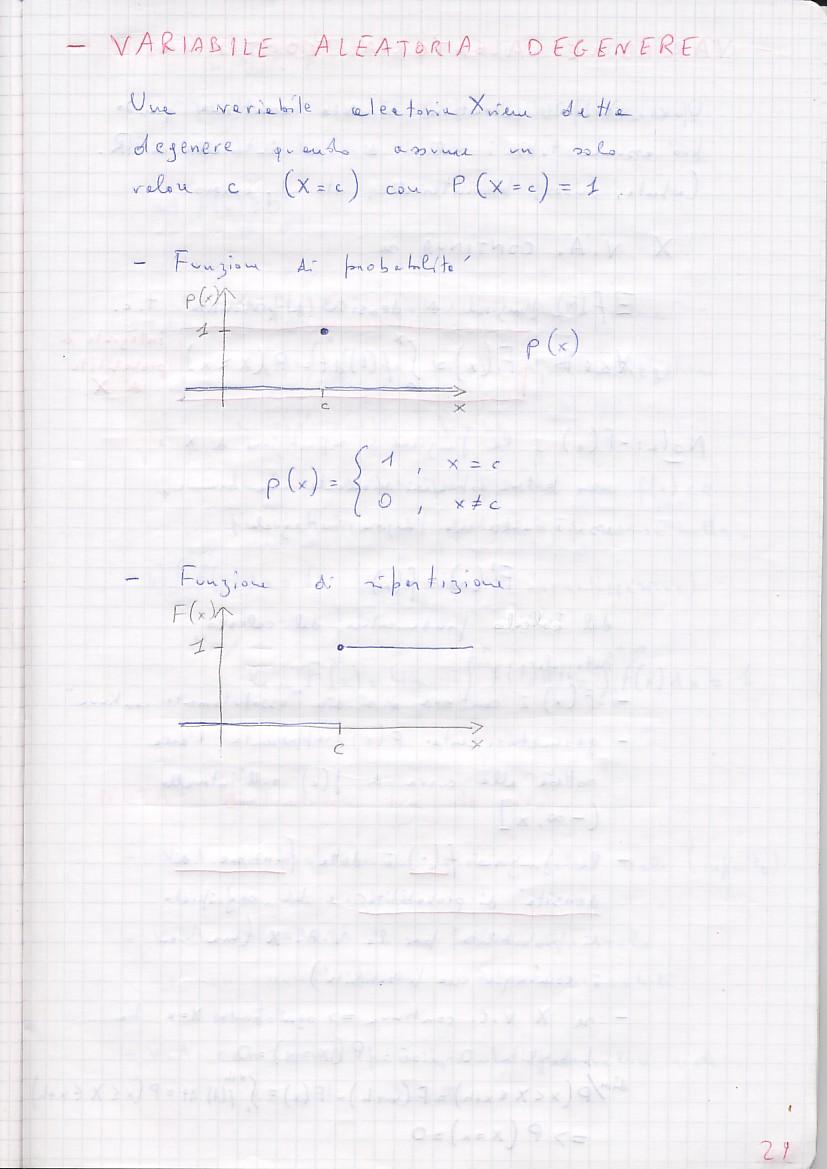 - VARIABILE ALEATORIA DEGENERE
Una variabile aleatoria X viene detta
degenere quando assume un solo
valore c (X = c) con P(X = c) = 1.
- Funzione di probabilità
p(x)
1
p(x)
c
x
p(x) = { 1 , x = c
0 , x ≠ c
- Funzione di ripartizione
F(x)
1
c
x